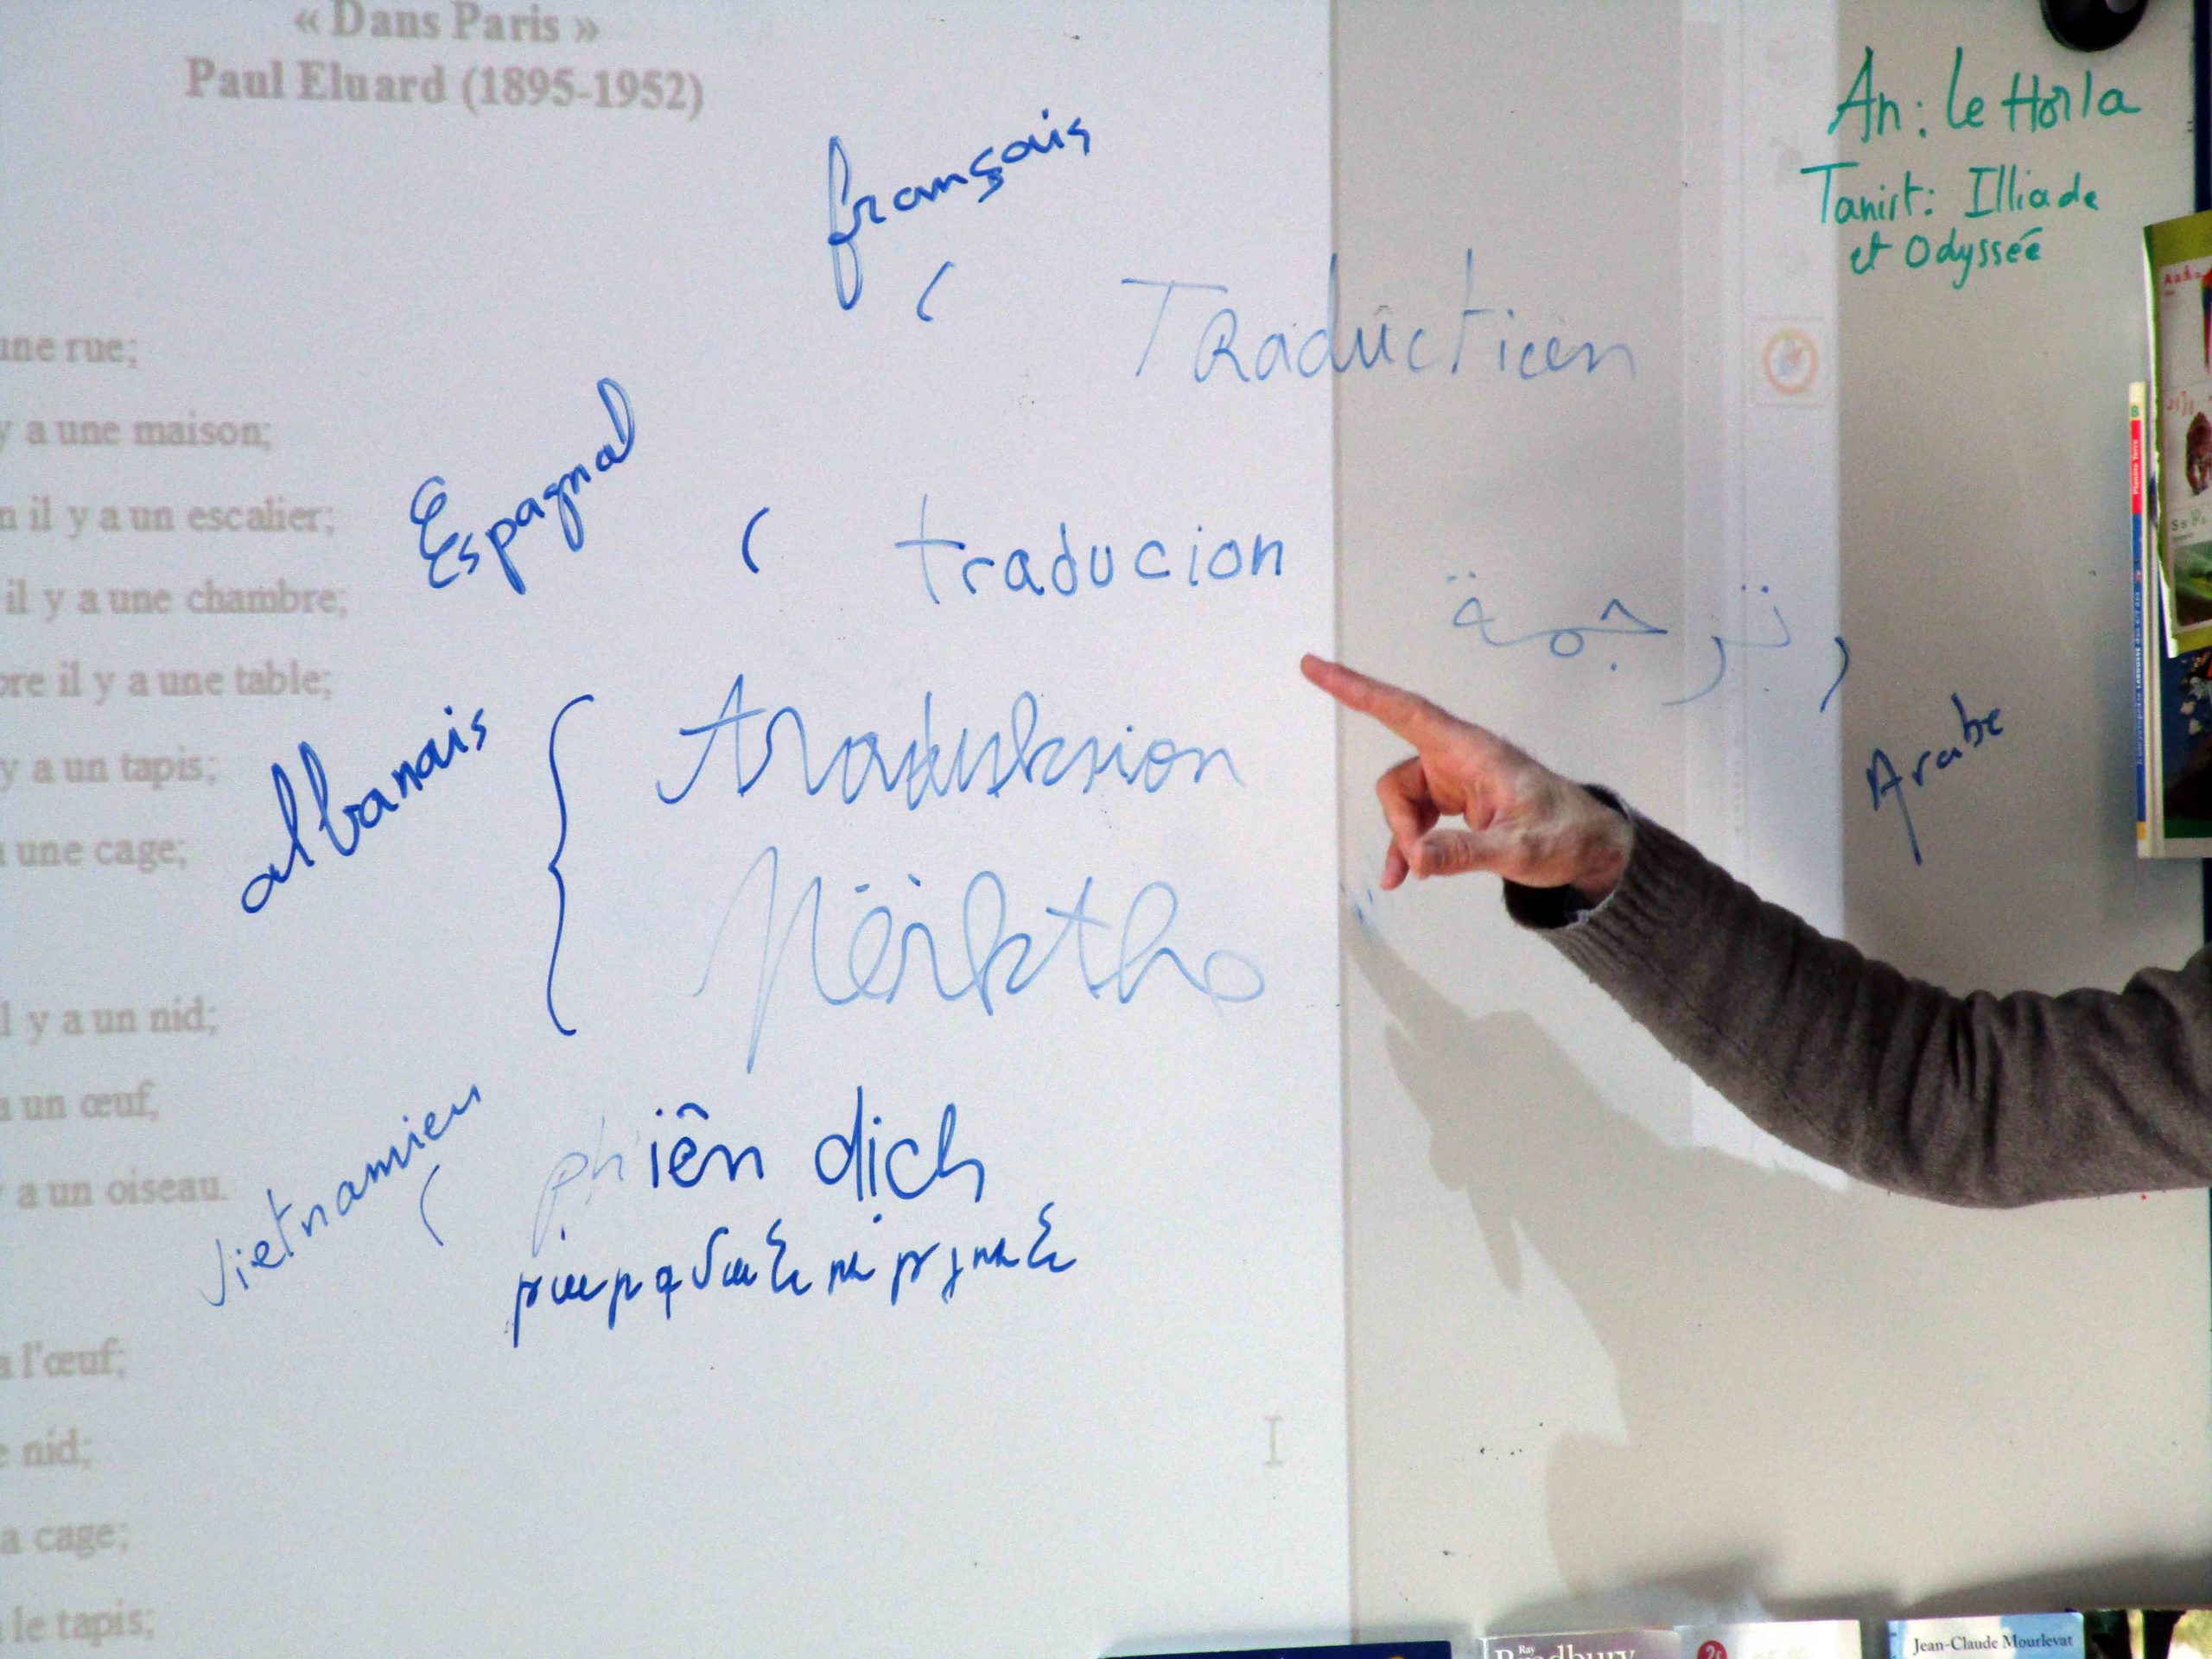 « Dans Paris »
Paul Eluard (1895-1952)
An: le Horla
Tanirt: Illiade
et Odyssée
français
( Traduction
une rue;
y a une maison;
il y a un escalier;
il y a une chambre;
il y a une table;
y a un tapis;
une cage;
l y a un nid;
a un œuf,
a un oiseau.
a l'œuf;
nid;
a cage;
le tapis;
Espagnol
( traducion
ترجمة
Arabe
albanais
{ traduksion
Përktho
Vietnamien
( phiên dich
Ray
Bradbury
Jean-Claude Mourlevat